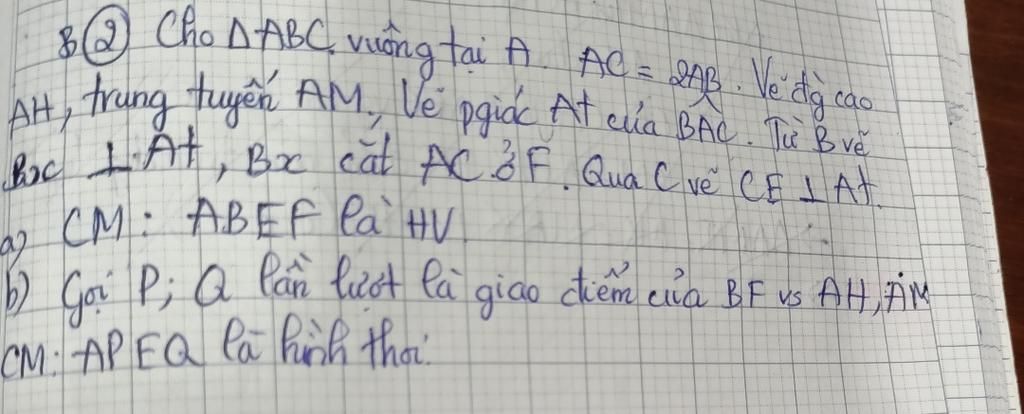 B② Cho ΔABC vuông tại A. AC = 2AB. Vẽ đg cao
AH, trung tuyến AM, Vẽ pgiác At của BAC. Từ B vẽ
Bx ⊥ At, Bx cắt AC ở F. Qua C vẽ CE ⊥ At.
a) CM: ABEF là HV
b) Gọi P; Q lần lượt là giao điểm của BF vs AH, AM
CM: APEQ là hình thoi.